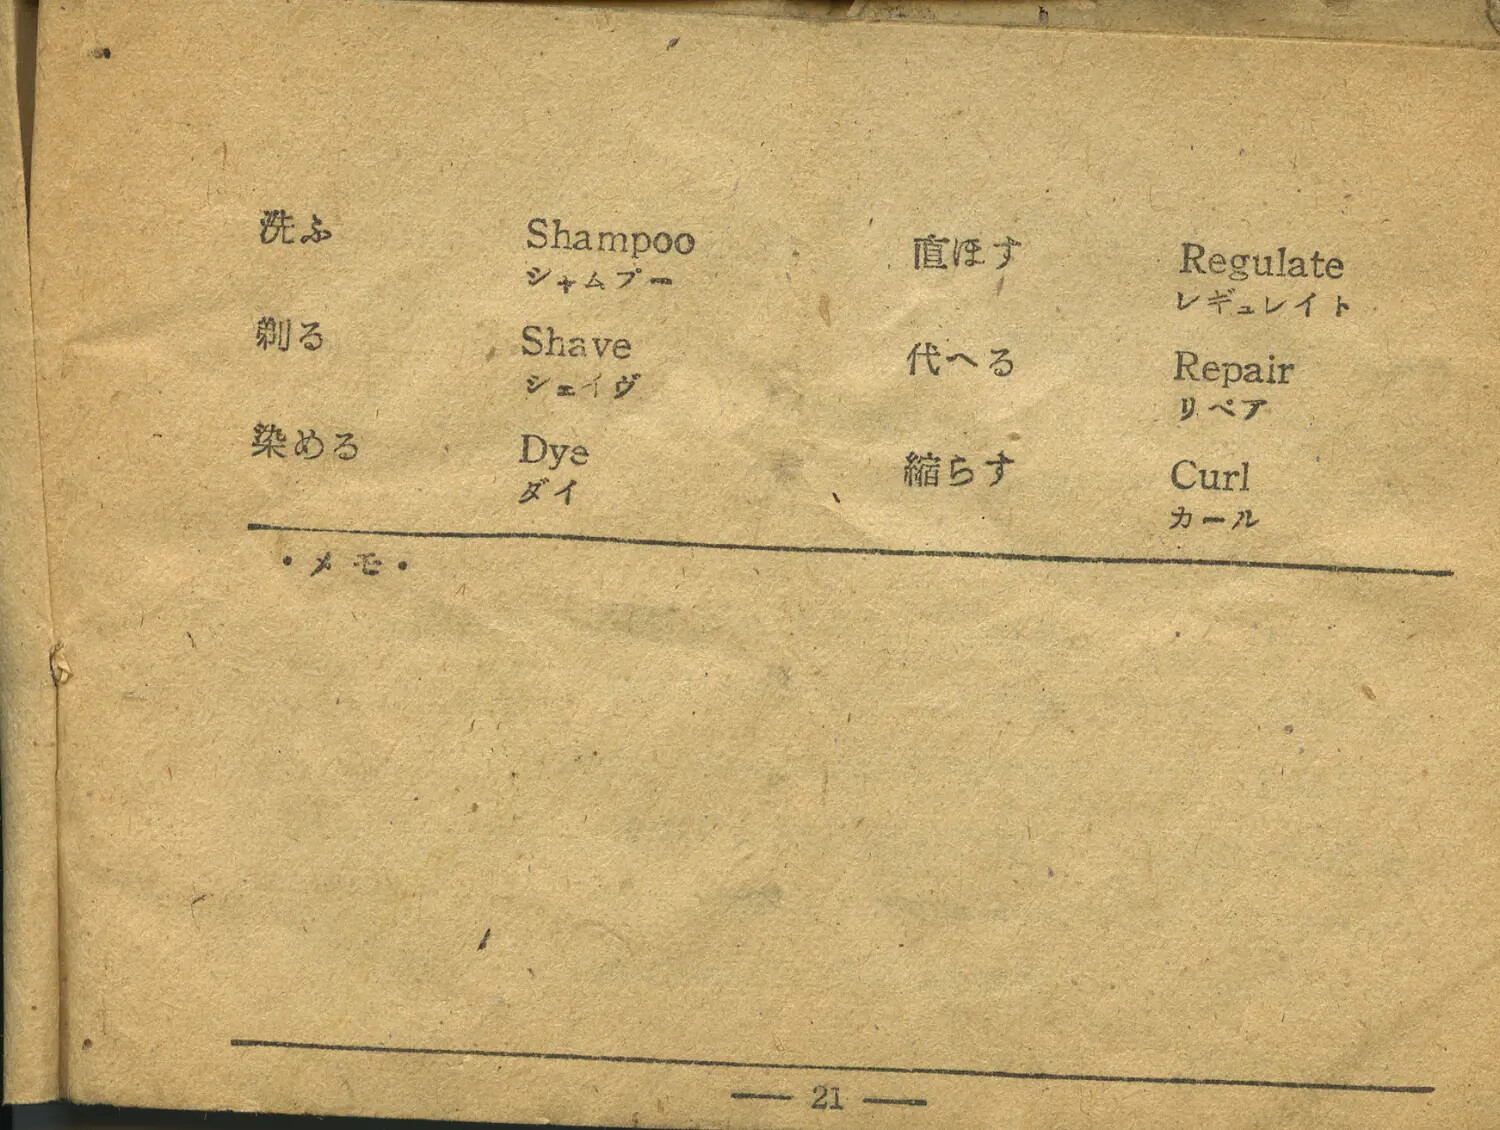 洗ふ
Shampoo
シャムプー
剃る
Shave
シェイヴ
染める
Dye
ダイ
直ほす
Regulate
レギュレイト
代へる
Repair
リペア
縮らす
Curl
カール
・メモ・
— 21 —